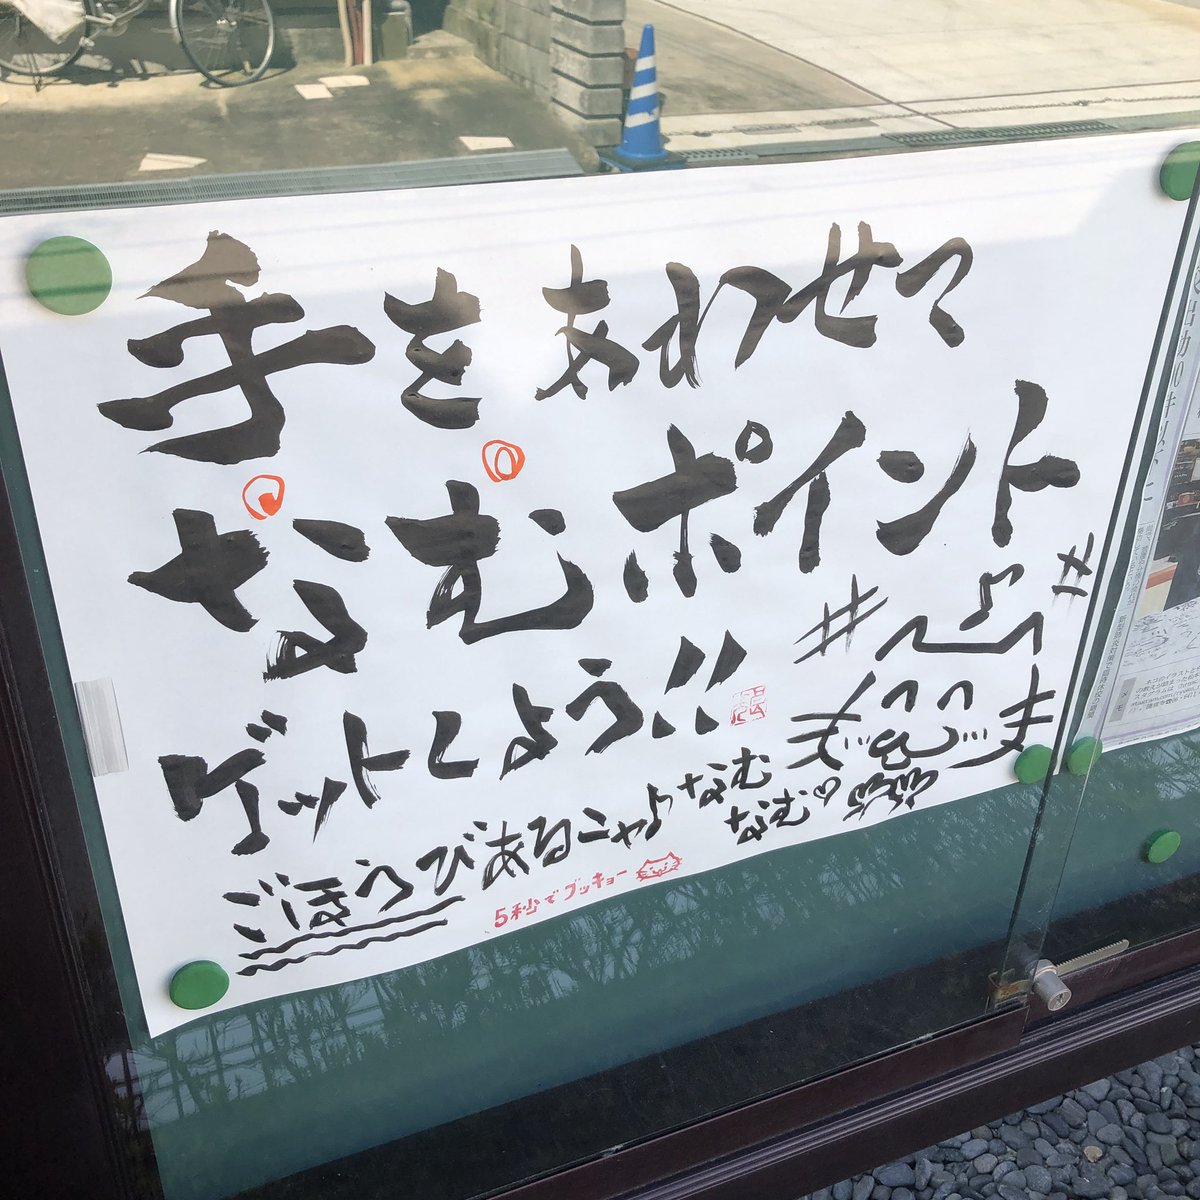 手をあわせて
なむポイント
ゲットしよう!!
ごほうびあるニャよ なむなむ♡
5秒でブッキョー